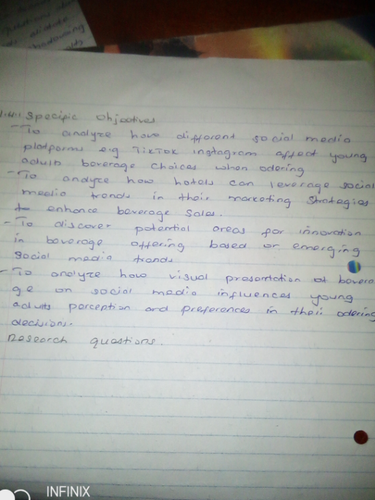 1.4.1 Specific Objectives
- To analyze how different social media
platforms e.g TikTok instagram affect young
adults beverage choices when odering
- To analyze how hotels can leverage social
media trends in their marketing strategies
to enhance beverage sales.
- To discover potential areas for innovation
in beverage offering based on emerging
social media trends
- To analyze how visual presentation of bevera
ge on social media influences young
adults perception and preferences in their odering
decisions.
Research questions.
INFINIX